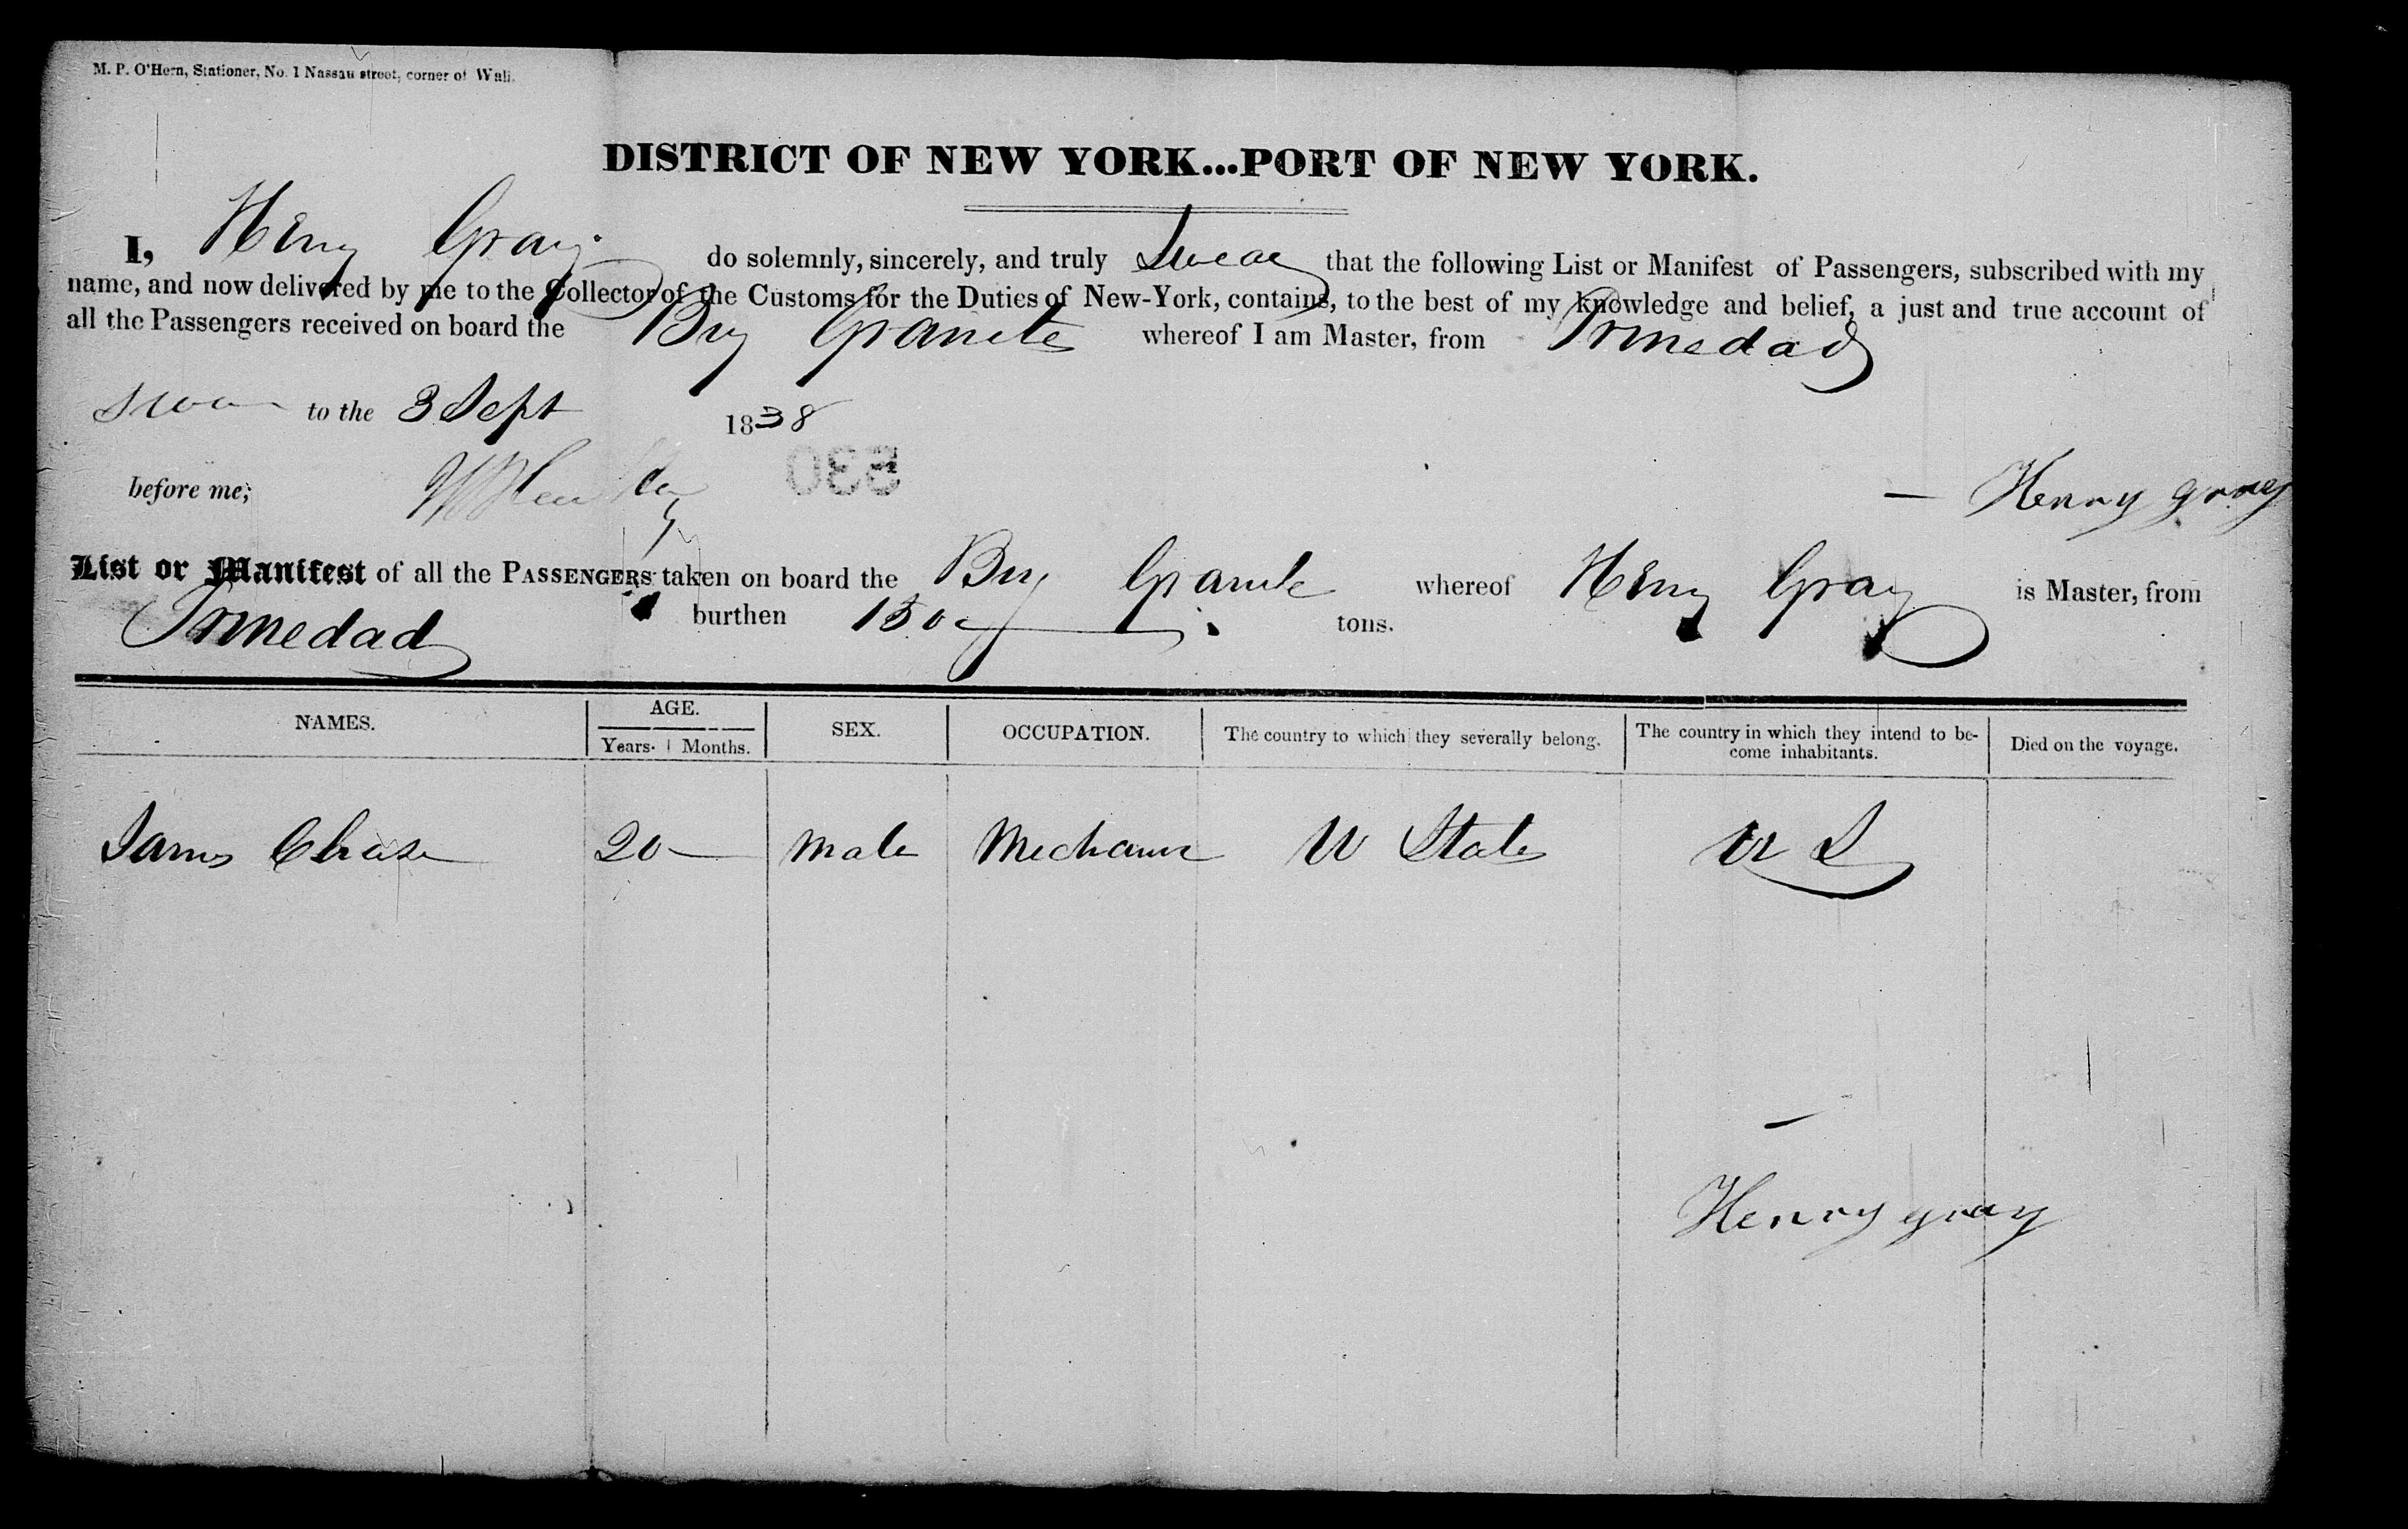 M. P. O'Hern, Stationer, No. 1 Nassau street, corner of Wall.
DISTRICT OF NEW YORK...PORT OF NEW YORK.
I, Henry Gray do solemnly, sincerely, and truly Swear that the following List or Manifest of Passengers, subscribed with my
name, and now delivered by me to the Collector of the Customs for the Duties of New-York, contains, to the best of my knowledge and belief, a just and true account of
all the Passengers received on board the Brig Granite whereof I am Master, from Trinedad
Sworn to the 3 Sept 1838
before me; 
Henry gray
List or Manifest of all the PASSENGERS taken on board the Brig Granite whereof Henry Gray is Master, from
Trinedad burthen 150 tons.
NAMES. AGE. SEX. OCCUPATION. The country to which they severally belong. The country in which they intend to be-
come inhabitants. Died on the voyage.
Years. Months.
James Chase 20 male Mechanic U States U S
Henry gray